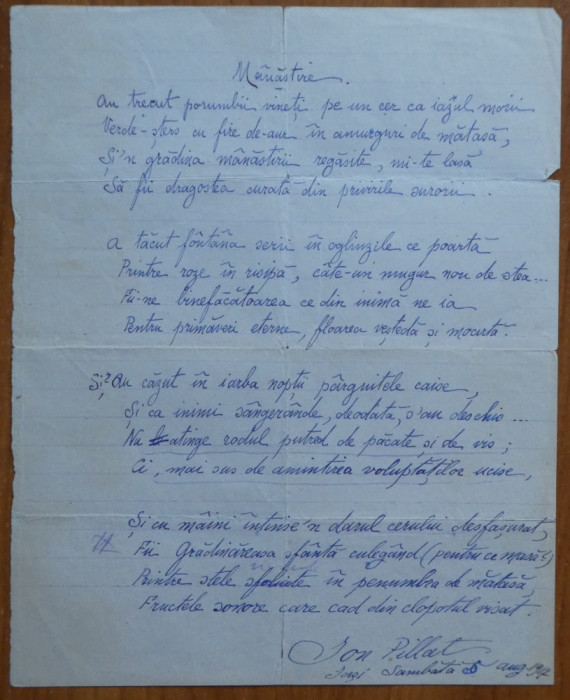 Mânăstire.
Au trecut porumbii vineți pe un cer ca iazul morii
Verde-șters cu fire de-aur în amurguri de mătasă,
Și'n grădina mânăstirii regăsite, mi-te lasă
Să fii dragostea curată din privirile surorii.
A tăcut fântâna serii în oglinzile ce poartă
Printre roze în risipă, câte-un mugur nou de stea...
Fii-ne binefăcătoarea ce din inimă ne ia
Pentru primăveri eterne, floarea veștedă și moartă.
Și au căzut în iarba nopții pârguitele caise,
Și ca inimi sângerânde, deodată, s'au deschis...
Nu atinge rodul putred de păcate și de vis;
Ci, mai sus de amintirea voluptăților ucise,
Și cu mâini întinse'n darul cerului desfășurat,
Fii Grădinăreasa sfântă culegând (pentru ce masă?)
Printre stele în penumbra de mătasă,
Fructele sonore care cad din clopotul visat.
Ion Pillat
Sambătă 5 aug